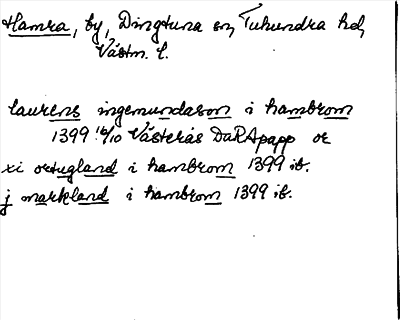 Hamra, by, Dingtuna sn, Tuhundra hd,
Västm. l.
laurens ingemundason i hambrom
1399 16/10 Västerås DaRApapp or
xi ortugland i hambrom 1399 ib.
j markland i hambrom 1399 ib.